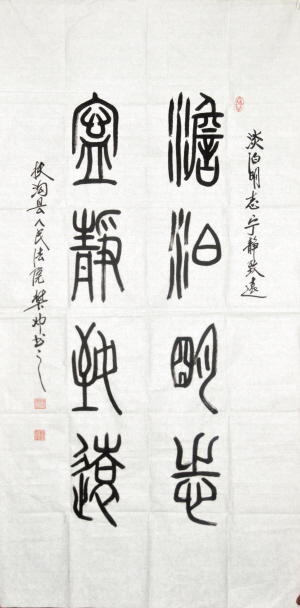 淡泊明志宁静致远
澹泊明志
寧靜致遠
扶沟县人民法院樊帅书之